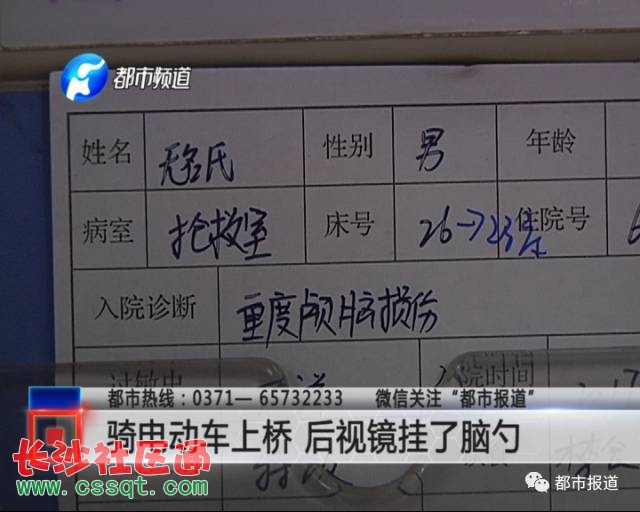 都市频道
姓名 无名氏 性别 男 年龄
病室 抢救室 床号 26→23床 住院号
入院诊断 重度颅脑损伤
过敏史 入院时间
都市热线：0371—65732233 微信关注“都市报道”
骑电动车上桥 后视镜挂了脑勺
长沙社区通
www.cssqt.com
都市报道